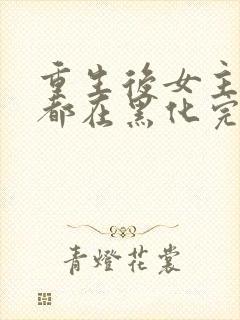 重生後女主
都在黑化完
青燈花裳